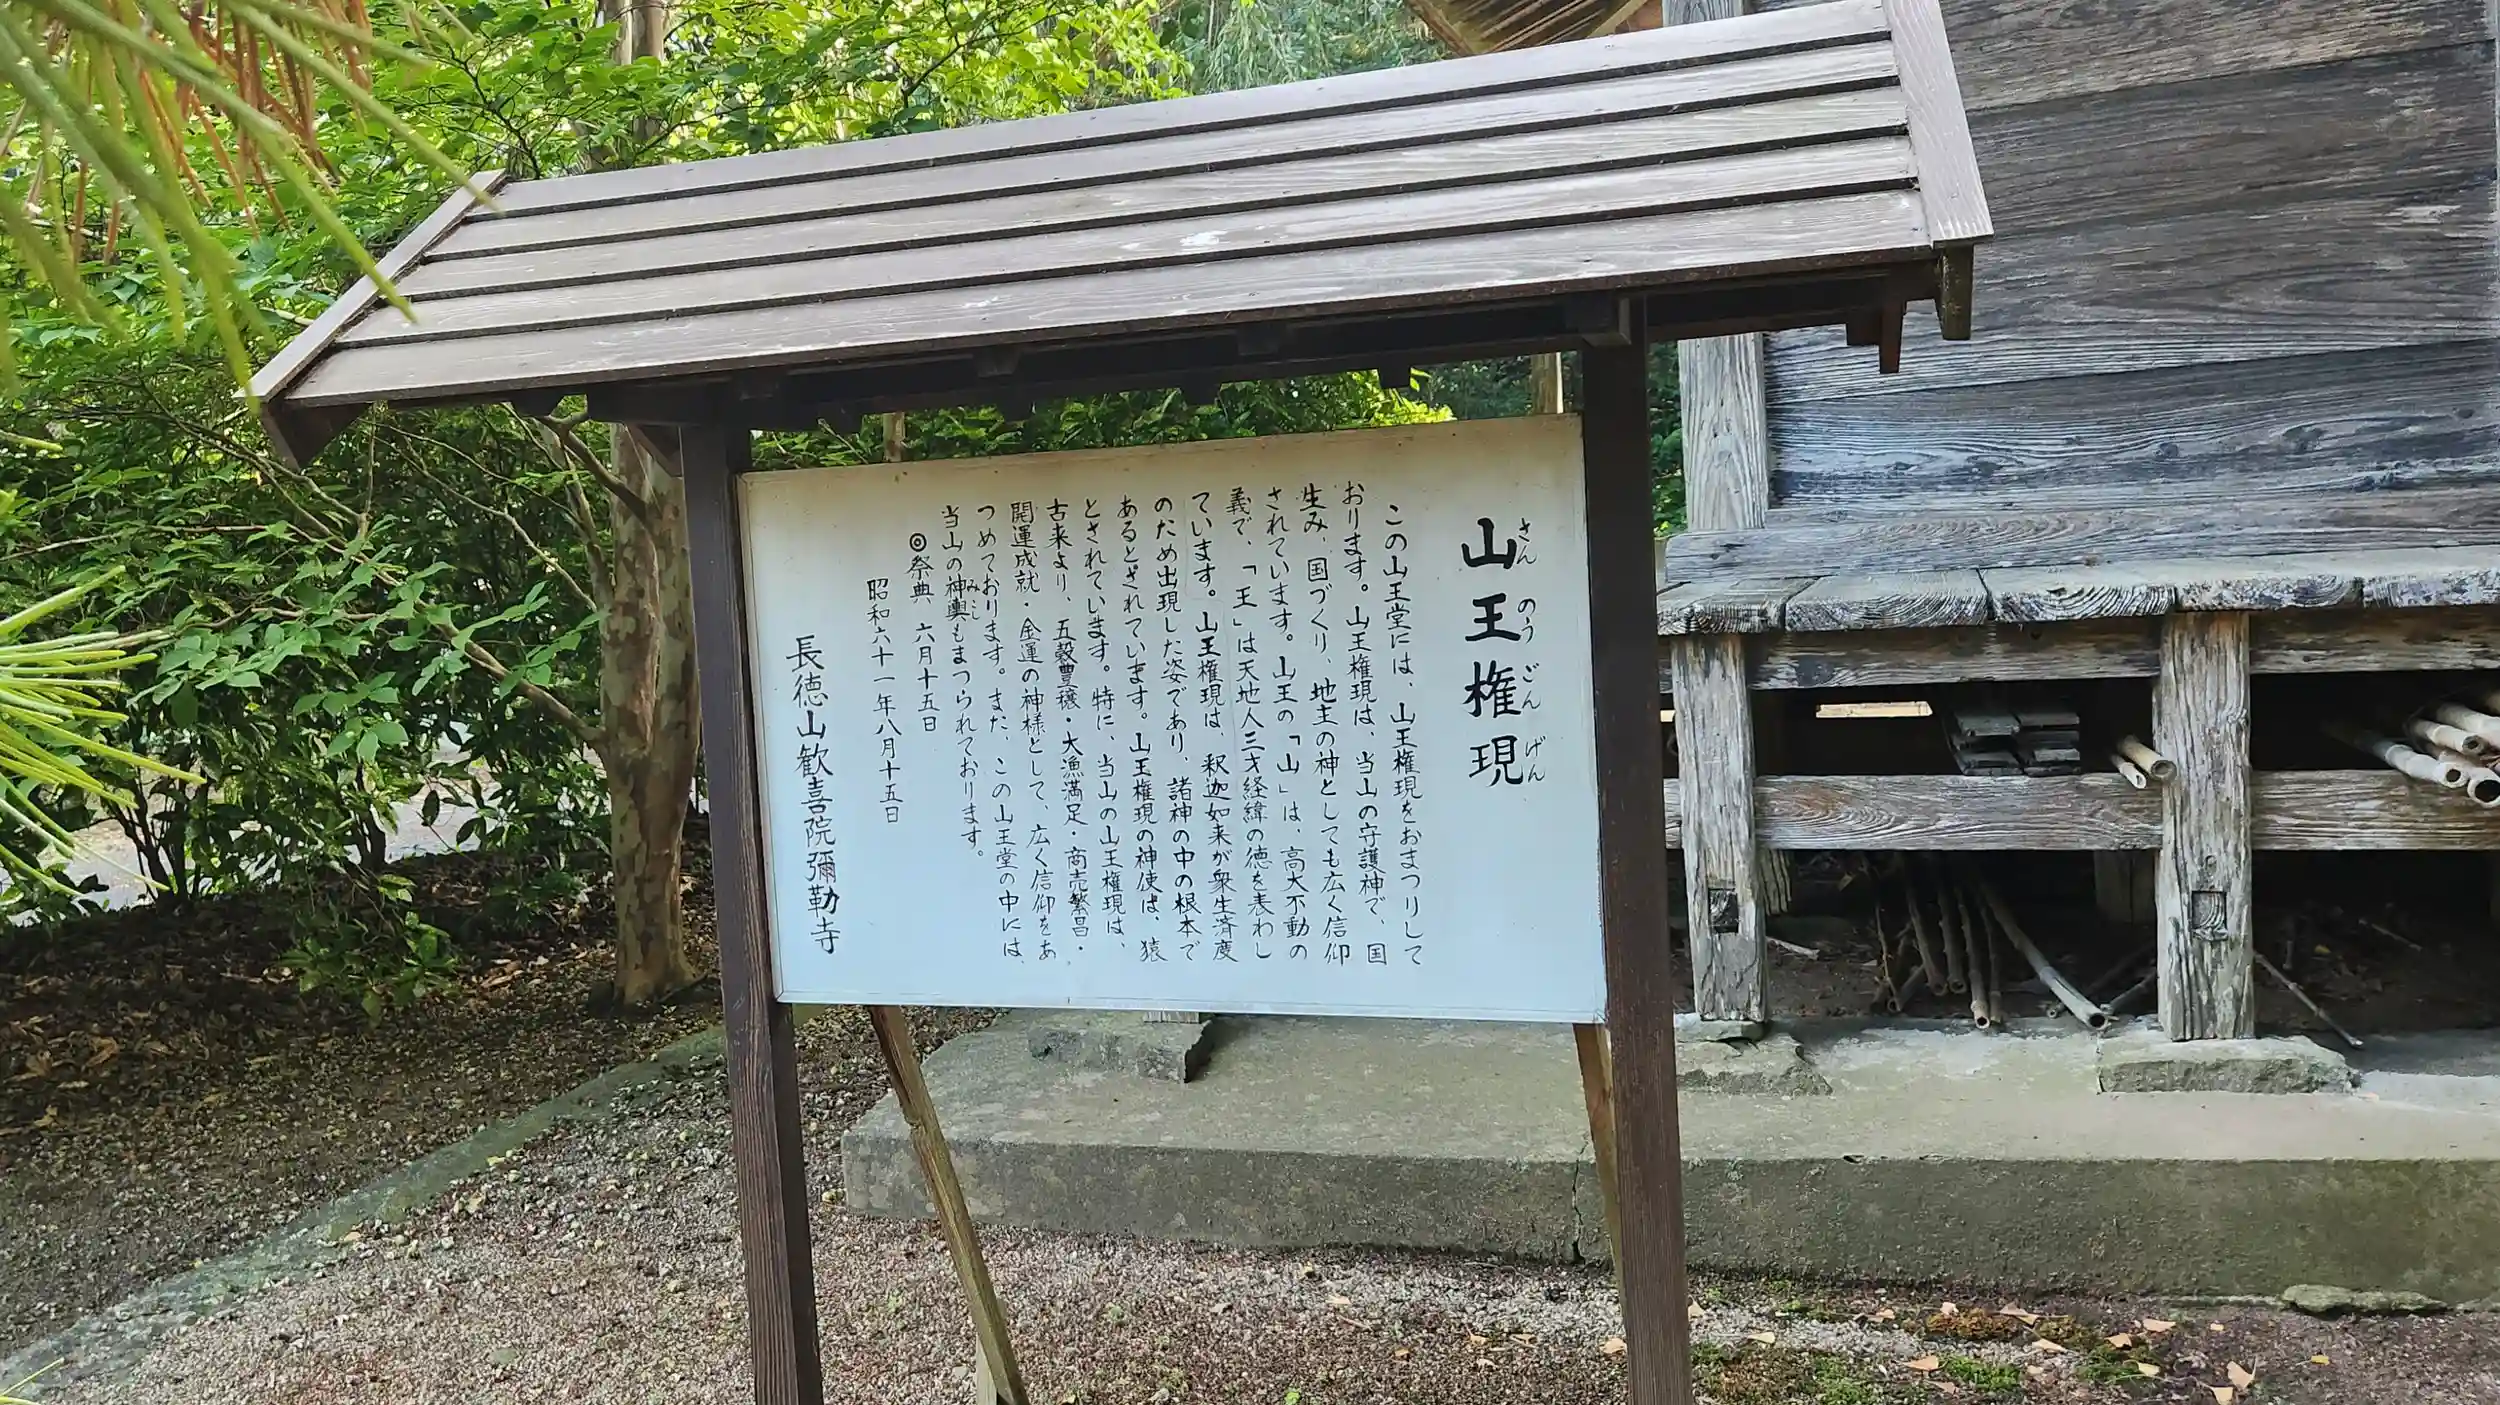 山王権現
さんのうごんげん
この山王堂には、山王権現をおまつりして
おります。山王権現は、当山の守護神で、国
生み、国づくり、地主の神としても広く信仰
されています。山王の「山」は、高大不動の
義で、「王」は天地人三才経緯の徳を表わし
ています。山王権現は、釈迦如来が衆生済度
のため出現した姿であり、諸神の中の根本で
あるとされています。山王権現の神使は、猿
とされています。特に、当山の山王権現は、
古来より、五穀豊穣・大漁満足・商売繁昌・
開運成就・金運の神様として、広く信仰をあ
つめております。また、この山王堂の中には、
当山の神輿もまつられております。
みこし
◎祭典、六月十五日
昭和六十一年八月十五日
長徳山歓喜院彌勒寺